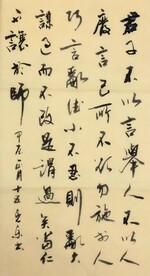 君子不以言舉人不以人
廢言己所不欲勿施於人
巧言亂德小不忍則亂大
謀過而不改是謂過矣當仁
不讓於師 甲辰